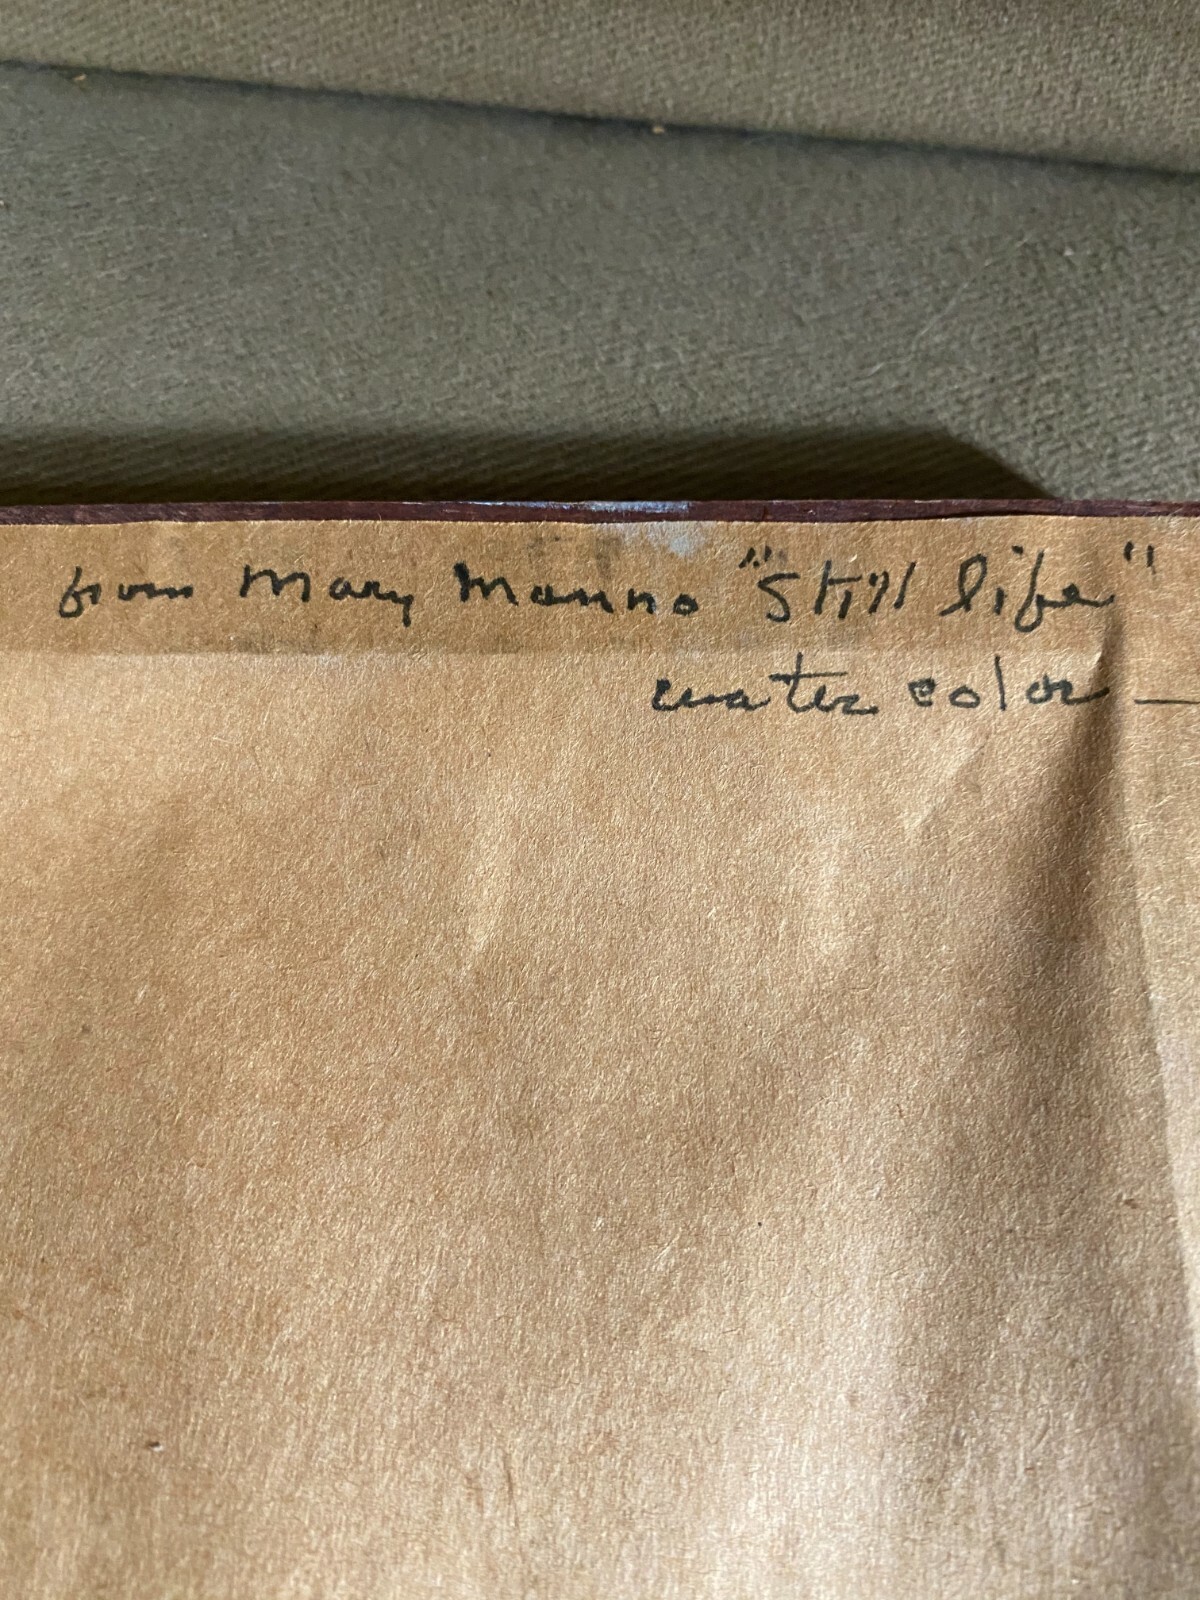 from Mary Manno "Still life"
water color —